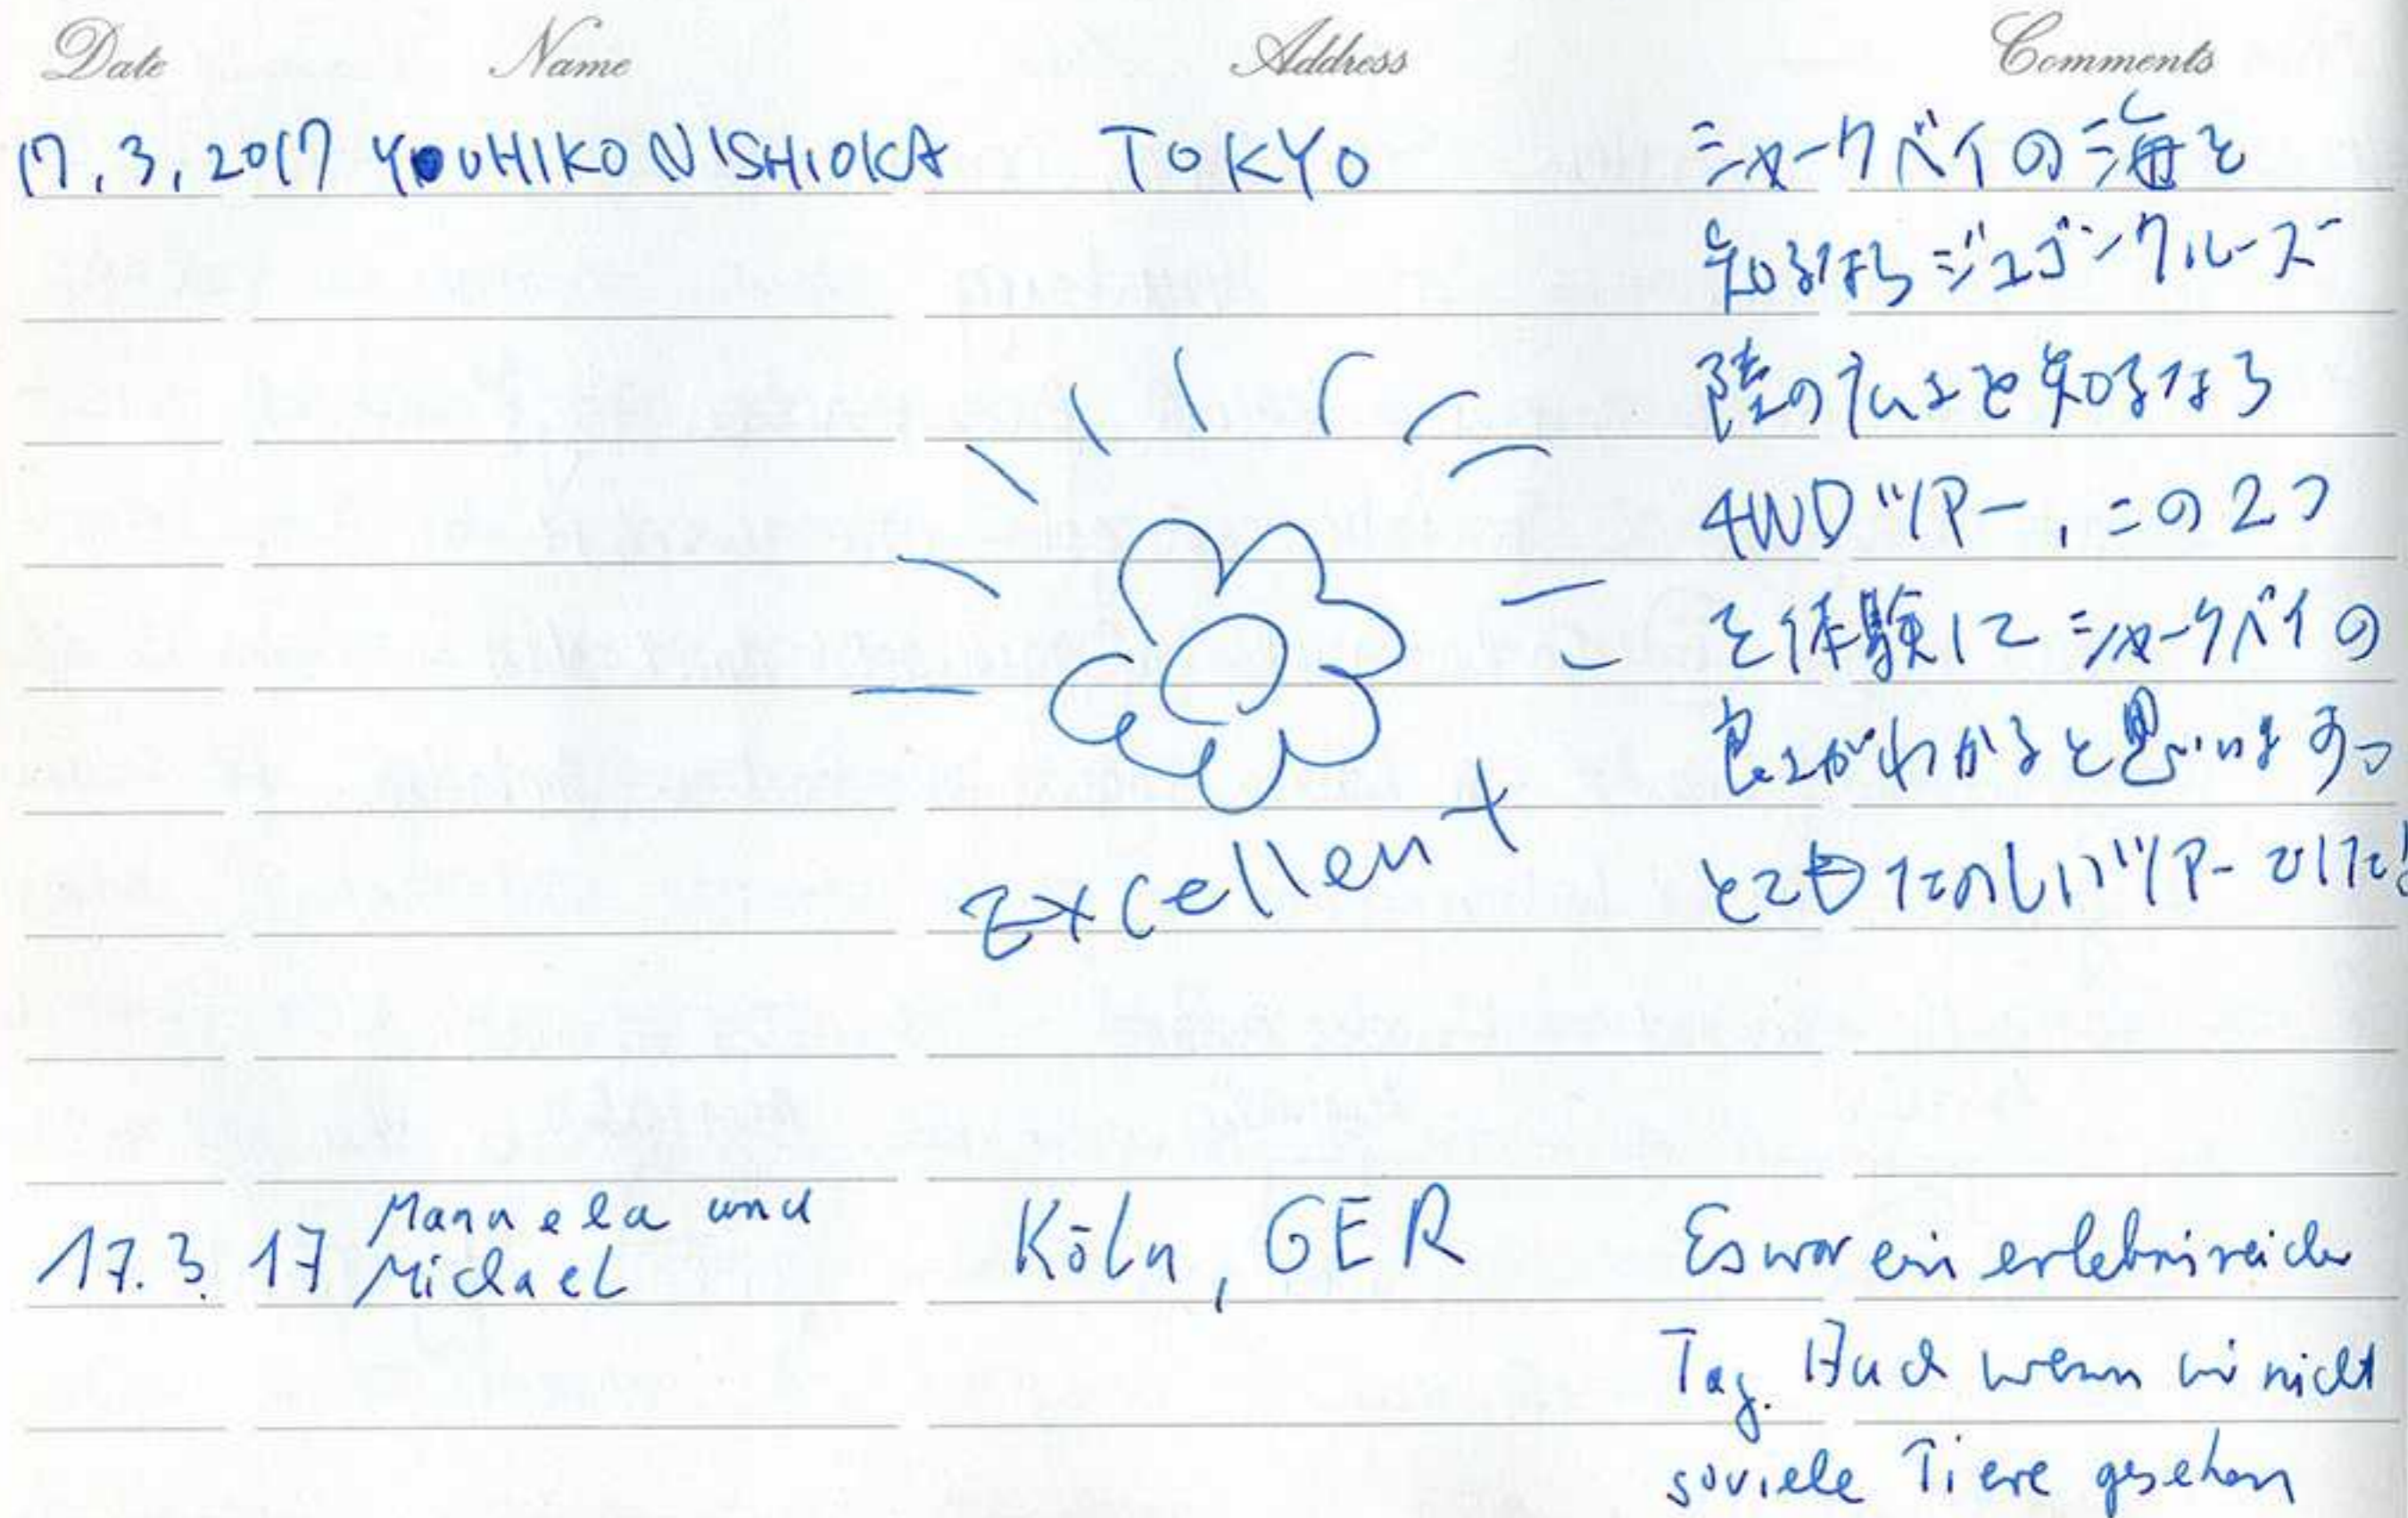 Date Name Address Comments
17.3.2017 YOUHIKO NISHIOKA TOKYO シャークベイの海を
知るならジュゴンクルーズ
陸の広さを知るなら
4WDツアー、この2つ
を体験してシャークベイの
良さがわかると思います。
とてもたのしいツアーでした!
Excellent
17.3.17 Manuela und
Michael
Köln, GER Es war ein erlebnisreicher
Tag. Auch wenn wir nicht
soviele Tiere gesehen